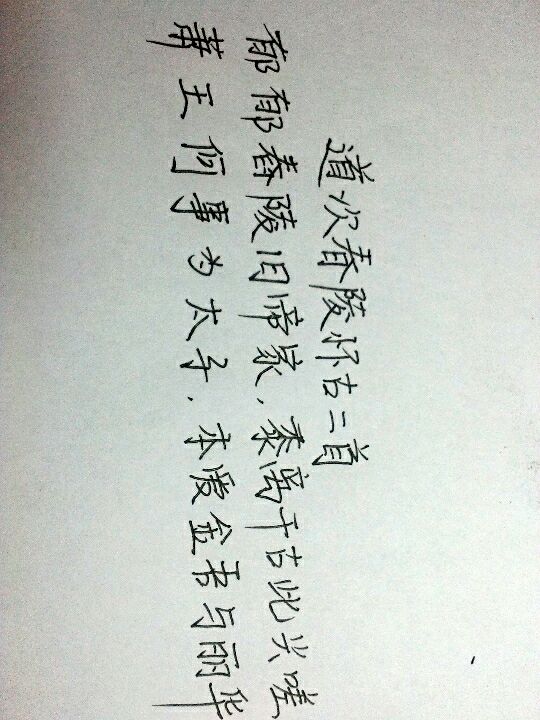 道次舂陵怀古二首
郁郁舂陵旧帝家，黍离千古此兴嗟
萧王何事为太子，本爱金吾与丽华